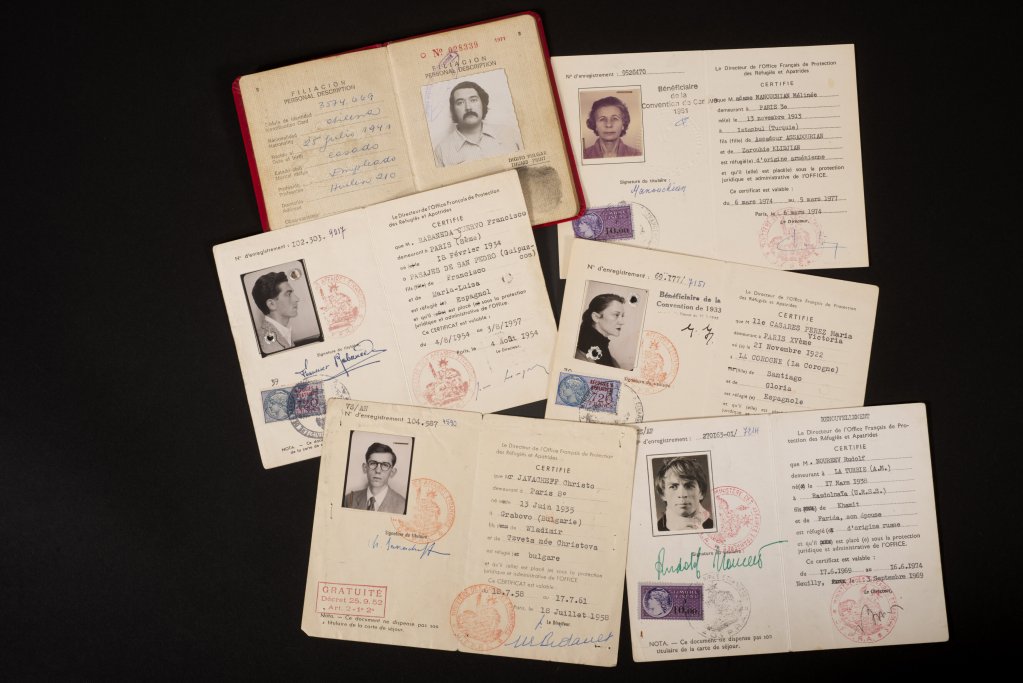 8
FILIACION
PERSONAL DESCRIPTION
3.574.449
Cédula de Identidad
Identification Card
chilena
Nacionalidad
Nationality
25 julio 1941
Date of Birth
casado
Estado Civil
Empleado
Profesión
Profession
Domicilio
Address
Observaciones
Nº 028339
1977
9
FILIACION
PERSONAL DESCRIPTION
DIGITO PULGAR
THUMB PRINT
N° d'enregistrement : 9526470
Bénéficiaire
de la
Convention de Genève
1951
Signature du titulaire :
Manouchian
10,00
Le Directeur de l'Office Français de Protection
des Réfugiés et Apatrides
CERTIFIE
que M adame MANOUCHIAN Mélinée
demeurant à PARIS 3e
né(e) le 13 novembre 1913
à Istanbul (Turquie)
fils (fille) de
et de Zarouhie
est réfugié(e) d'origine arménienne
et qu'il (elle) est placé(e) sous la protection
juridique et administrative de l'OFFICE.
Ce certificat est valable :
du 6 mars 1974 au 5 mars 1977
Paris, le 6 mars 1974
Le Directeur,
N° d'enregistrement : 102.303-
Signature du titulaire
39
NOTA. — Ce
de la carte de
Le Directeur de l'Office Français de Protection
des Réfugiés et Apatrides
CERTIFIE
que M. RABANEDA CUERVO Francisco
demeurant à PARIS (8ème)
né le 18 Février 1934
à PASAJES DE SAN PEDRO (Guipuz-
coa)
fils de Francisco
et de Maria-Luisa
est réfugié Espagnol
et qu'il est placé sous la protection
juridique et administrative de l'OFFICE.
Ce CERTIFICAT est valable :
du 4/8/1954 au 3/8/1957
Paris, le 4 Août 1954
Le Directeur,
N° d'enregistrement : 69.177/7151
Bénéficiaire de la
Convention de 1933
Signature du titulaire
Le Directeur de l'Office Français de Protection
des Réfugiés et Apatrides
CERTIFIE
que M lle CASARES PEREZ Maria
Victoria
demeurant à PARIS XVème
né(e) le 21 Novembre 1922
à LA COROGNE (La Corogne)
fille de Santiago
et de Gloria
est réfugiée Espagnole
et qu'il (elle) est placé
juridique et
VS/AN
N° d'enregistrement : 104.587
Signature du titulaire
GRATUITÉ
Décret 25.9.52
Art. 2-1°2°
NOTA. — Ce document ne dispense pas son
titulaire de la carte de séjour.
Le Directeur de l'Office Français de Protection
des Réfugiés et Apatrides
CERTIFIE
que Mr JAVACHEFF Christo
demeurant à Paris 8°
né le 13 Juin 1935
à Grabovo (Bulgarie)
fils de Wladimir
et de Tzveta née Christova
est réfugié bulgare
et qu'il (elle) est placé (e) sous la protection
juridique et administrative de l'OFFICE.
Ce CERTIFICAT est valable
du 18.7.58 au 17.7.61
Paris, le 18 Juillet 1958
Le Directeur,
N° d'enregistrement : 270103-01/
Signature du titulaire
Rudolf Noureev
10,00
NOTA. — Ce document ne dispense pas son
titulaire de la carte de séjour.
RENOUVELLEMENT
Le Directeur de l'Office Français de Pro-
tection des Réfugiés et Apatrides.
CERTIFIE
que M. NOUREEV Rudolf
demeurant à LA TURBIE (A.M.)
né(e) le 17 Mars 1938
à Rasdolnaïa (U.R.S.S.)
fils de Khamit
et de Farida, son épouse
est réfugié(e) d'origine russe
et qu'il est placé (e) sous la protection
juridique et administrative de l'OFFICE.
Ce certificat est valable :
du 17.6.1969 au 16.6.1974
Neuilly, le 3 Septembre 1969
Le Directeur,